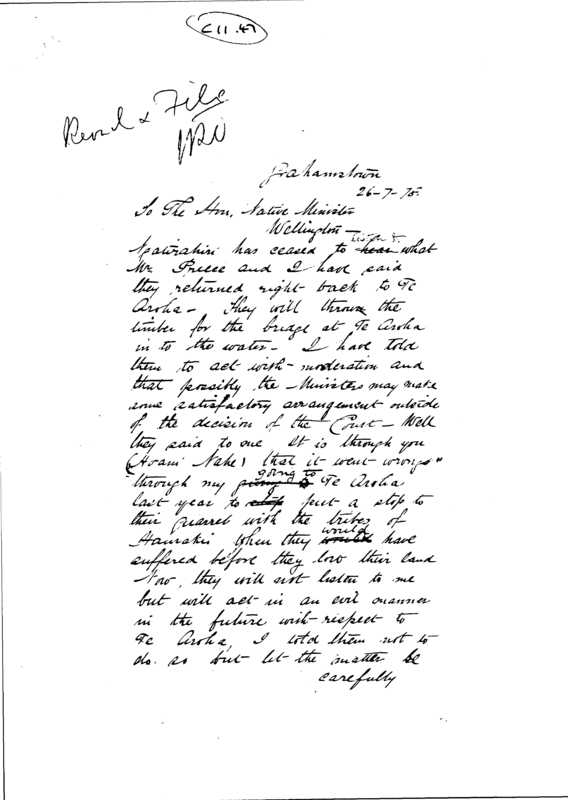 C11.47
Record & File
Grahamstown
26-7-75.
To The Hon. Native Minister
Wellington —
Ngatirahiri has ceased to hear listen to what
Mr. Preece and I have said
they returned right back to Te
Aroha — They will throw the
timber for the bridge at Te Aroha
in to the water — I have told
them to act with moderation and
that possibly the Ministers may make
some satisfactory arrangement outside
of the decision of the Court — Well
they said to me It is through you
(Hoani Nahe) that it went wrong"
"through my going to Te Aroha
last year to stop put a stop to
their quarrel with the tribes of
Hauraki when they would would have
suffered before they lost their land
Now, they will not listen to me
but will act in an evil manner
in the future with respect to
Te Aroha, I told them not to
do so but let the matter be
carefully